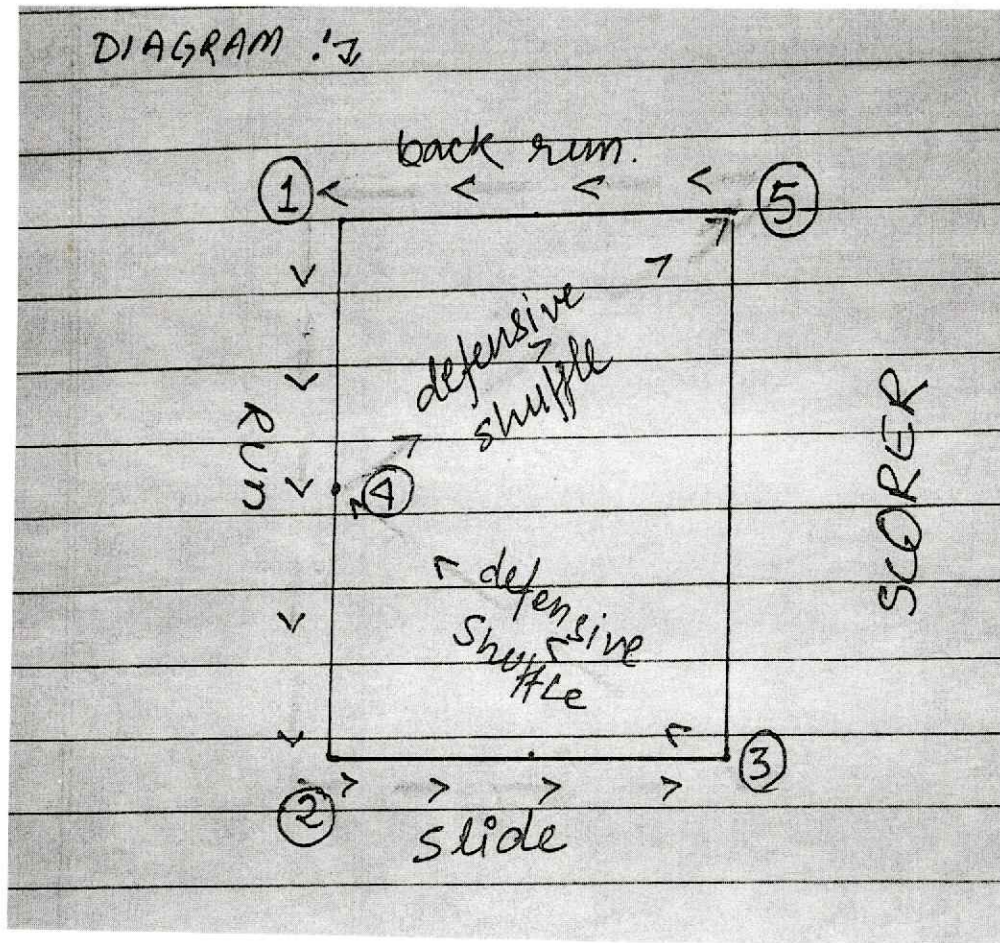 DIAGRAM :
back run.
1
5
defensive
shuffle
Run
4
SCORER
defensive
Shuffle
3
2
slide